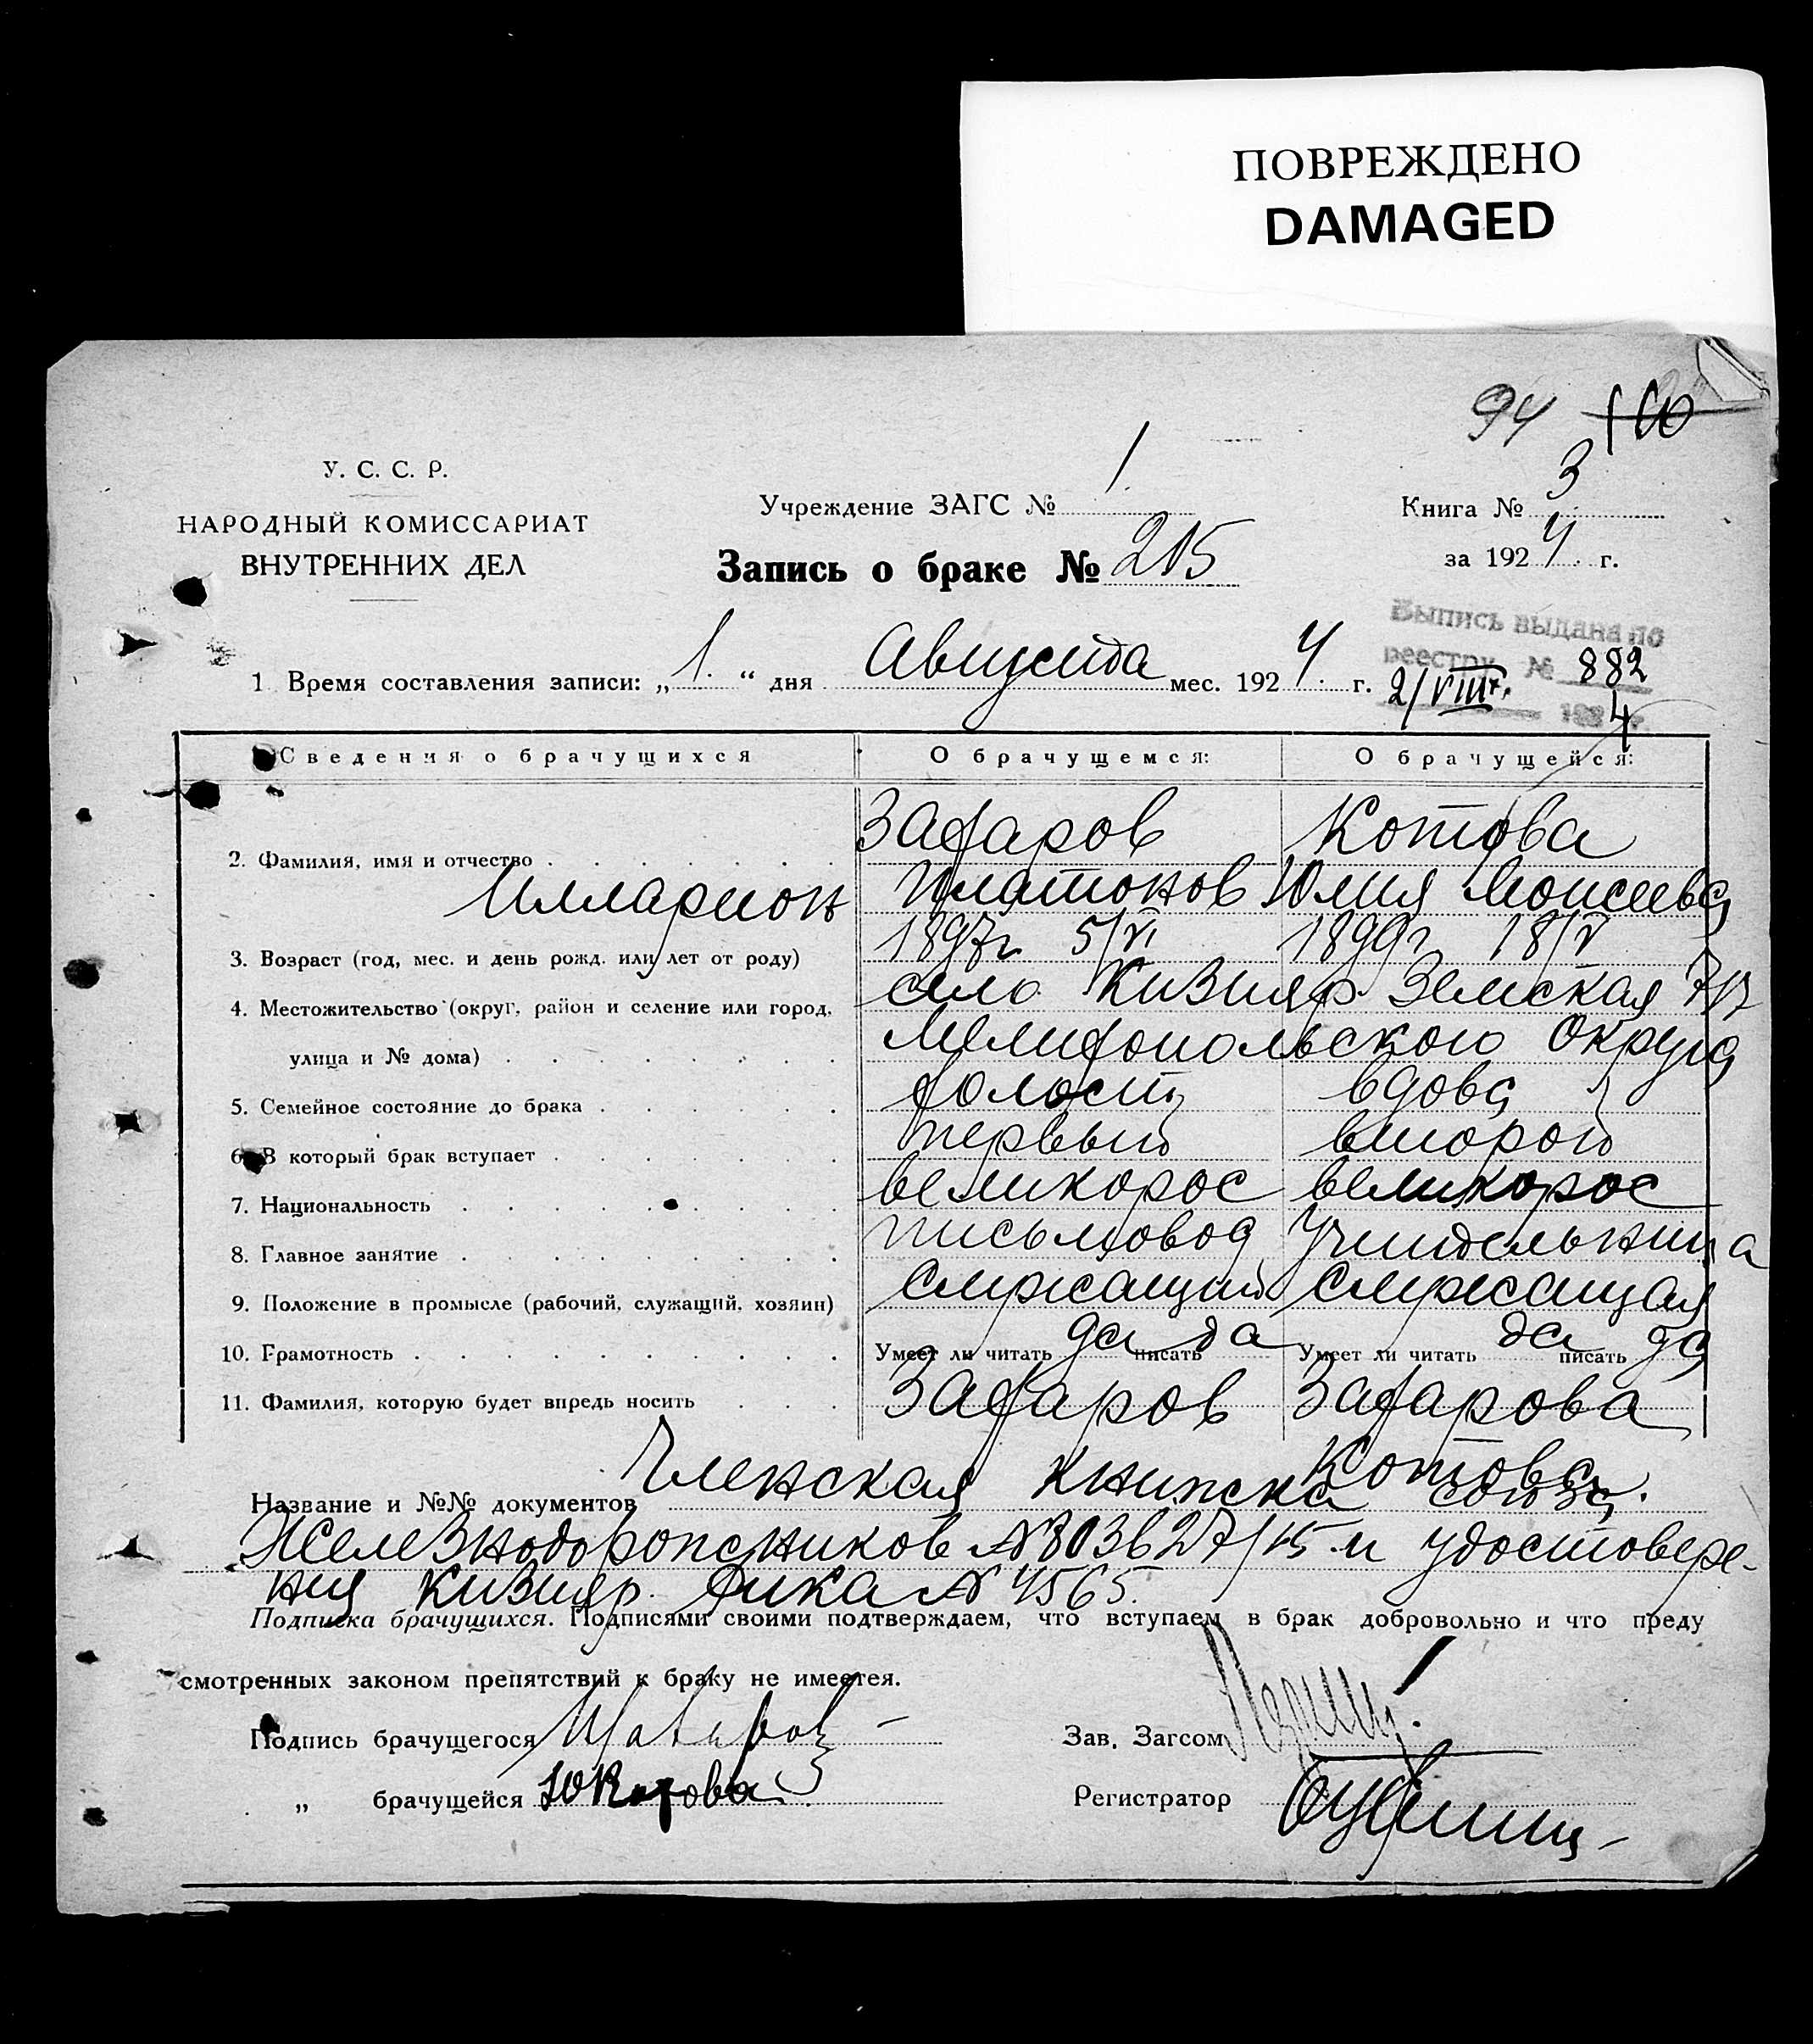 ПОВРЕЖДЕНО
DAMAGED
94 100
У. С. С. Р.
НАРОДНЫЙ КОМИССАРИАТ
ВНУТРЕННИХ ДЕЛ
Учреждение ЗАГС № 1.
Запись о браке № 215
Книга № 3
за 1924 г.
Выпись выдана по
реестру № 882
2/VIII 1924 г.
1 Время составления записи: „1.“ дня Августа мес. 1924. г.
Сведения о брачущихся О брачущемся: О брачущейся:
Зафаров Котова
2. Фамилия, имя и отчество
Илларион Платонов Юлия Моисеевa
3. Возраст (год, мес. и день рожд. или лет от роду) 1897 г. 5/VI 1899 г. 18/V
4. Местожительство (округ, район и селение или город, село Кизияр. Земская
улица и № дома) Мелитопольского Округа
5. Семейное состояние до брака холост вдова
6. В который брак вступает первый второй
7. Национальность великорос великорос
8. Главное занятие письмовод Учительница
9. Положение в промысле (рабочий, служащий, хозяин) Служащий Служащая
10. Грамотность Умеет ли читать да писать да Умеет ли читать да писать да
11. Фамилия, которую будет впредь носить Зафаров Зафарова
Котова.
Название и №№ документов Членская книжка союза
Железнодорожников № 803627/15 и удостовере-
ния Кизияр. № 4565.
Подписка брачущихся. Подписями своими подтверждаем, что вступаем в брак добровольно и что преду
смотренных законом препятствий к браку не имеется.
Подпись брачущегося
„ брачущейся ЮКотова
Зав. Загсом
Регистратор